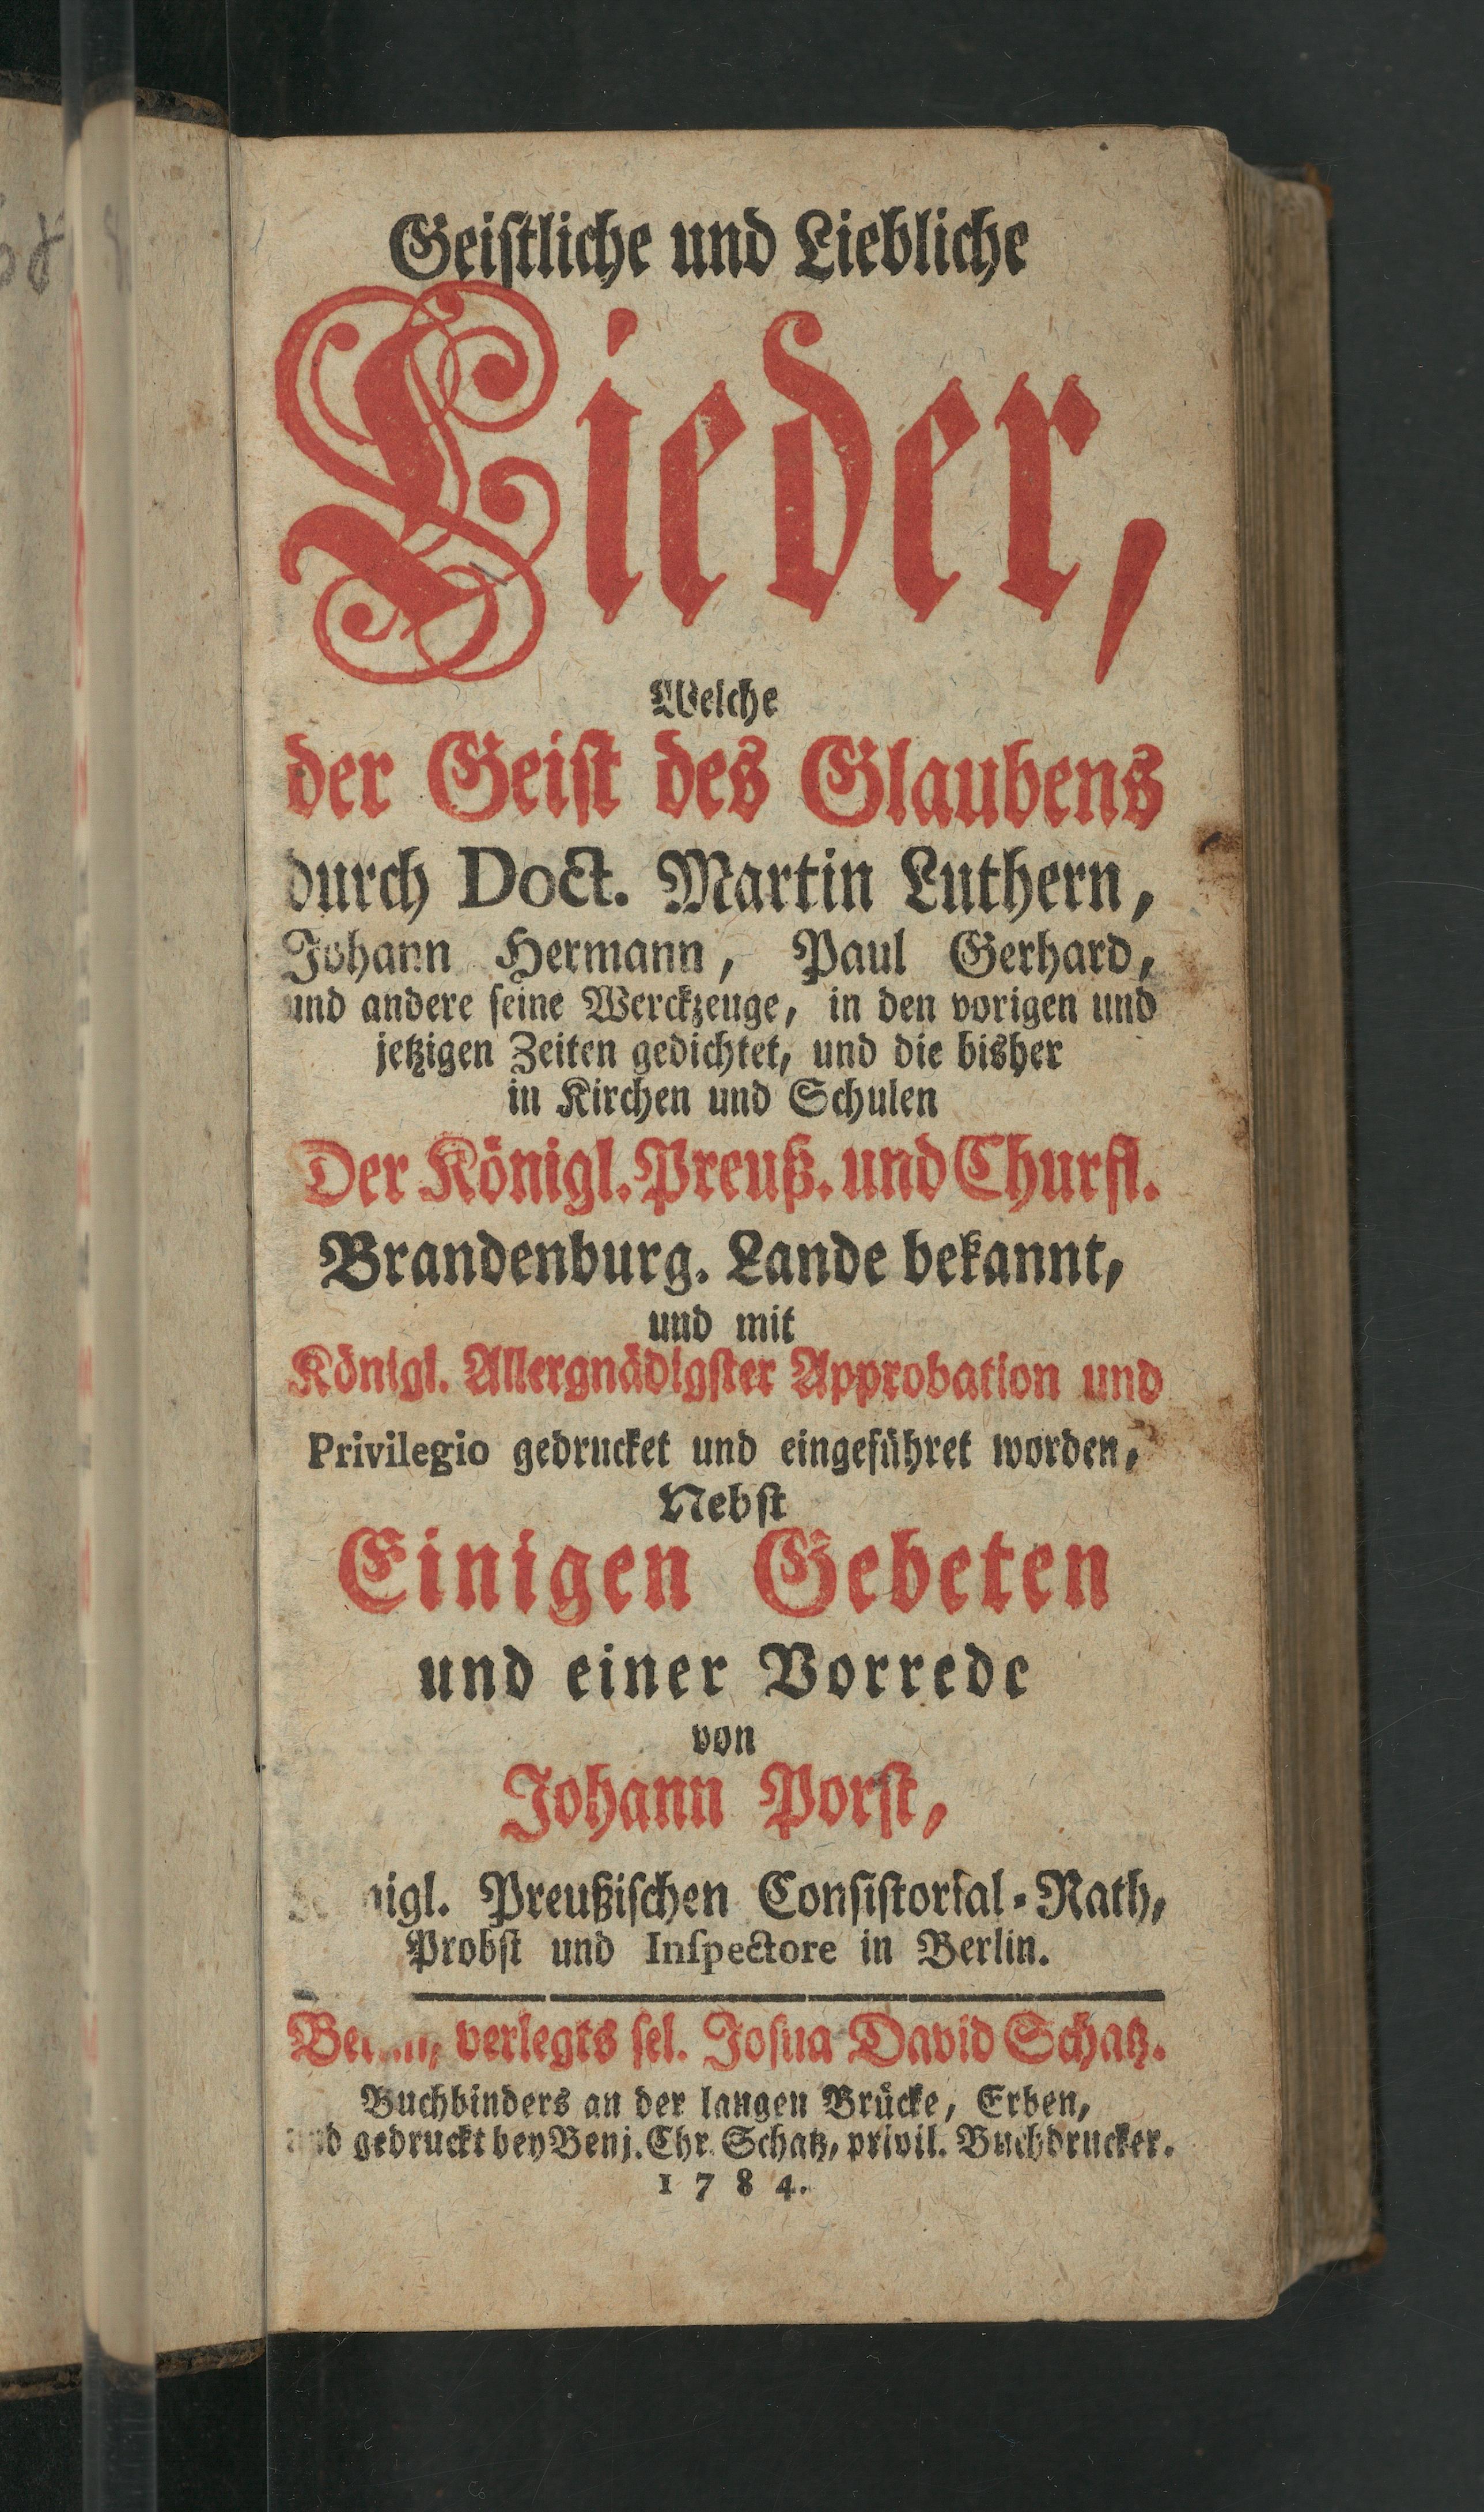 Geistliche und Liebliche
Lieder,
Welche
der Geist des Glaubens
durch Doct. Martin Luthern,
Johann Hermann, Paul Gerhard,
und andere seine Werckzeuge, in den vorigen und
jetzigen Zeiten gedichtet, und die bisher
in Kirchen und Schulen
Der Königl. Preuß. und Churfl.
Brandenburg. Lande bekannt,
und mit
Königl. Allergnädigster Approbation und
Privilegio gedrucket und eingeführet worden,
Nebst
Einigen Gebeten
und einer Vorrede
von
Johann Porst,
Königl. Preußischen Consistorial-Rath,
Probst und Inspectore in Berlin.
Berlin, verlegts sel. Josua David Schatz.
Buchbinders an der langen Brücke, Erben,
und gedruckt bey Benj. Chr. Schatz, privil. Buchdrucker.
1784.